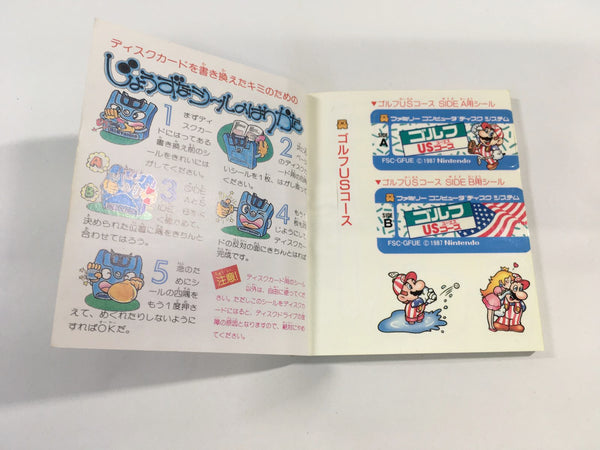 ディスクカードを書き換えたキミのための
じょうずなシールのはりかた
1
まずディ
スクカー
ドにはってある
書き換え前のシ
ールをきれいには
がしてください。
2
いシールを1枚、はがし取って
ください。
3
決められた位置に端をきちんと
合わせてはろう。
4
もう
じようにして
ディスクカー
ドの反対の面にきちんとはれば
完成です。
5
念のた
めにシ
ールの四隅を
もう1度押さ
えて、めくれたりしないように
すればOKだ。
注意!
ディスクカード用のシール
以外は、自由に使ってくだ
さい。ただしこのシールをディスク
カードにはると、ディスクドライブの故
障の原因となりますので、絶対にやめ
てください。
ゴルフUSコース
▼ゴルフUSコース SIDE A用シール
ファミリー コンピュータ ディスク システム
SIDE
A
ゴルフ
USコース
FSC-GFUE © 1987 Nintendo
▼ゴルフUSコース SIDE B用シール
ファミリー コンピュータ ディスク システム
SIDE
B
ゴルフ
USコース
FSC-GFUE © 1987 Nintendo